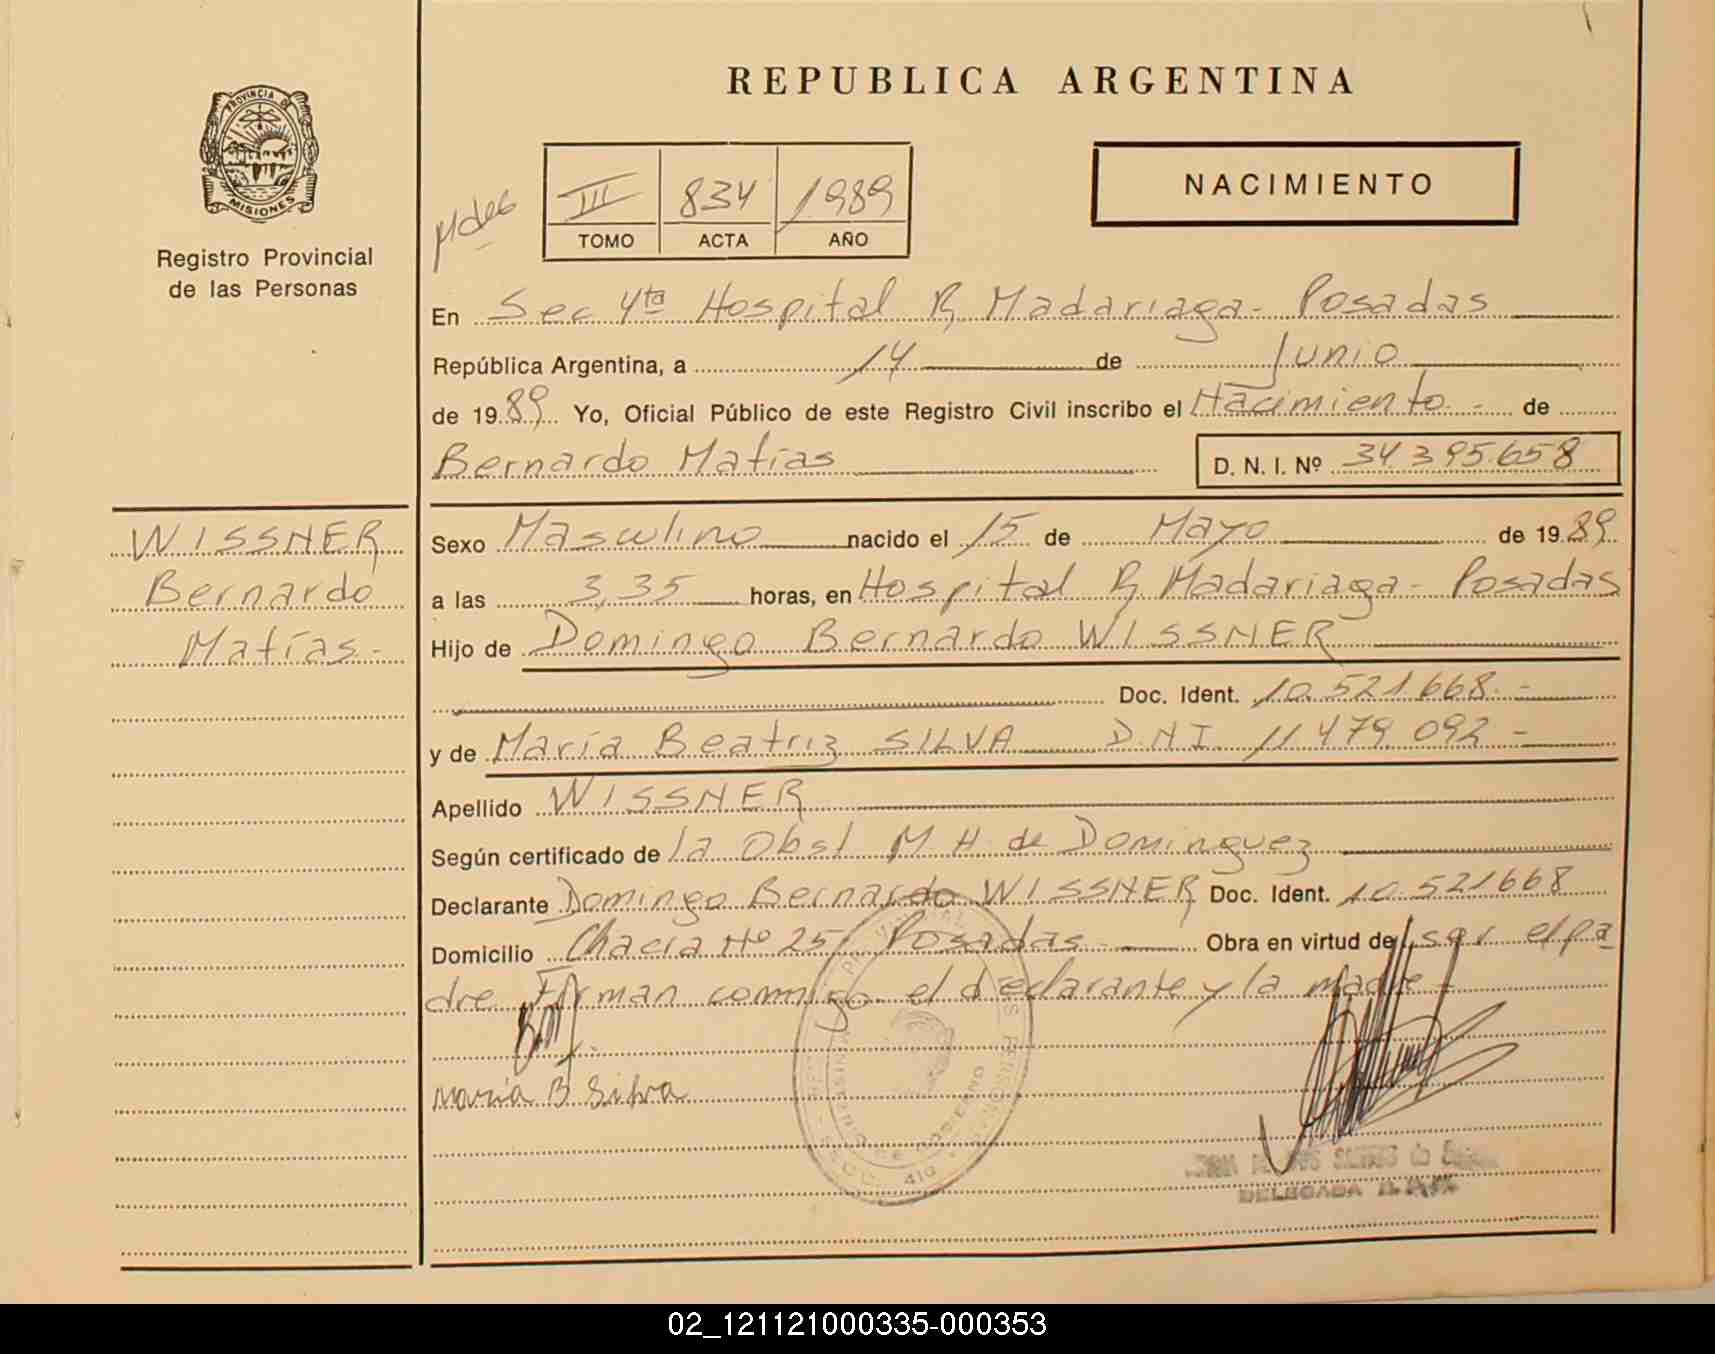 REPUBLICA ARGENTINA
PROVINCIA DE
MISIONES
Registro Provincial
de las Personas
Mdes
III 834 1989
TOMO ACTA AÑO
NACIMIENTO
En Sec 4ta Hospital R. Madariaga - Posadas
República Argentina, a 14 de Junio
de 1989 Yo, Oficial Público de este Registro Civil inscribo el Nacimiento - de
Bernardo Matías D. N. I. Nº 34.395.658
WISSNER
Bernardo
Matías.-
Sexo Masculino nacido el 15 de Mayo de 1989
a las 3,35 horas, en Hospital R. Madariaga - Posadas
Hijo de Domingo Bernardo WISSNER
Doc. Ident. 10.521.668.-
y de María Beatriz SILVA D.N.I. 11.479.092 -
Apellido WISSNER
Según certificado de la Obst M H de Dominguez
Declarante Domingo Bernardo WISSNER Doc. Ident. 10.521668
Domicilio Chacra Nº 25, Posadas - Obra en virtud de ser el pa
dre Firman conmigo el declarante y la madre -
María B Silva
DELEGADA
02_121121000335-000353